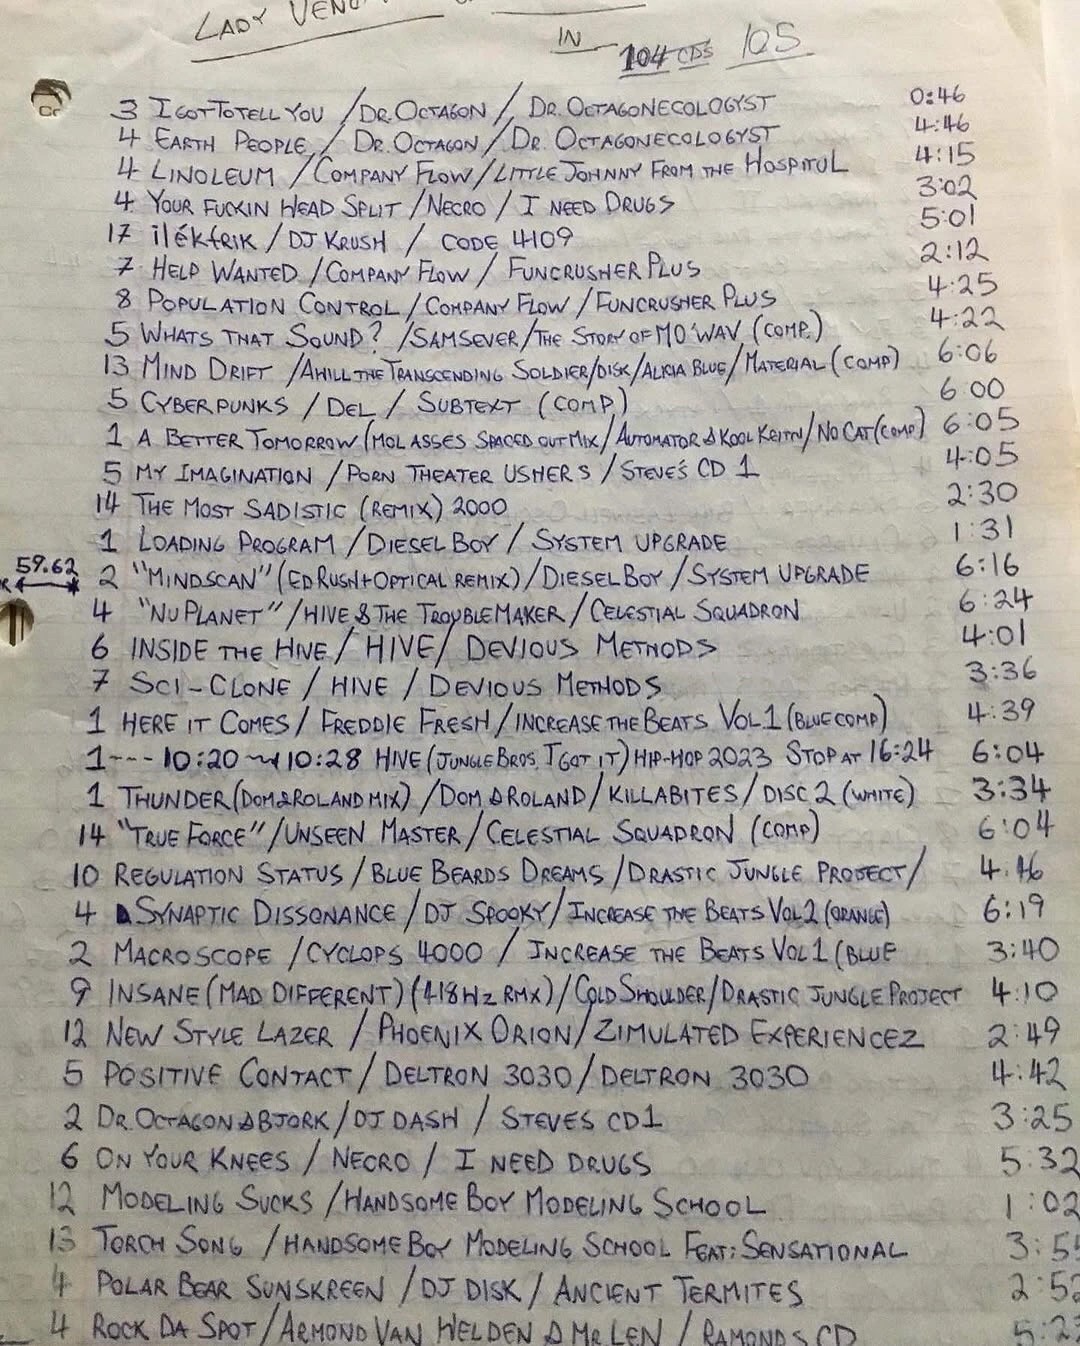 LADY
IN 104 CDS 105
3 I GOT TO TELL YOU / DR. OCTAGON / DR. OCTAGONECOLOGYST 0:46
4 EARTH PEOPLE / DR. OCTAGON / DR. OCTAGONECOLOGYST 4:46
4 LINOLEUM / COMPANY FLOW / LITTLE JOHNNY FROM THE HOSPITUL 4:15
4 YOUR FUCKIN HEAD SPLIT / NECRO / I NEED DRUGS 3:02
17 iléktrik / DJ KRUSH / CODE 4109 5:01
7 HELP WANTED / COMPANY FLOW / FUNCRUSHER PLUS 2:12
8 POPULATION CONTROL / COMPANY FLOW / FUNCRUSHER PLUS 4:25
5 WHATS THAT SOUND? / SAMSEVER / THE STORY OF MO'WAV (COMP.) 4:22
13 MIND DRIFT / AHILL THE TRANSCENDING SOLDIER / DISK / ALICIA BLUE / MATERIAL (COMP) 6:06
5 CYBERPUNKS / DEL / SUBTEXT (COMP) 6 00
1 A BETTER TOMORROW (MOLASSES SPACED OUT MIX / AUTOMATOR & KOOL KEITH / NO CAT (COMP) 6:05
5 MY IMAGINATION / PORN THEATER USHERS / STEVE'S CD 1 4:05
14 THE MOST SADISTIC (REMIX) 2000 2:30
1 LOADING PROGRAM / DIESELBOY / SYSTEM UPGRADE 1:31
59.62 2 "MINDSCAN" (ED RUSH + OPTICAL REMIX) / DIESELBOY / SYSTEM UPGRADE 6:16
4 "NU PLANET" / HIVE & THE TROUBLEMAKER / CELESTIAL SQUADRON 6:24
6 INSIDE THE HIVE / HIVE / DEVIOUS METHODS 4:01
7 SCI-CLONE / HIVE / DEVIOUS METHODS 3:36
1 HERE IT COMES / FREDDIE FRESH / INCREASE THE BEATS VOL 1 (BLUE COMP) 4:39
1--- 10:20 ~ 10:28 HIVE (JUNGLE BROS. I GOT IT) HIP-HOP 2023 STOP AT 16:24 6:04
1 THUNDER (DOM & ROLAND MIX) / DOM & ROLAND / KILLABITES / DISC 2 (WHITE) 3:34
14 "TRUE FORCE" / UNSEEN MASTER / CELESTIAL SQUADRON (COMP) 6:04
10 REGULATION STATUS / BLUE BEARDS DREAMS / DRASTIC JUNGLE PROJECT / 4:46
4 SYNAPTIC DISSONANCE / DJ SPOOKY / INCREASE THE BEATS VOL 2 (ORANGE) 6:19
2 MACROSCOPE / CYCLOPS 4000 / INCREASE THE BEATS VOL 1 (BLUE 3:40
9 INSANE (MAD DIFFERENT) (418 Hz RMX) / COLD SHOULDER / DRASTIC JUNGLE PROJECT 4:10
12 NEW STYLE LAZER / PHOENIX ORION / ZIMULATED EXPERIENCEZ 2:49
5 POSITIVE CONTACT / DELTRON 3030 / DELTRON 3030 4:42
2 DR. OCTAGON & BJORK / DJ DASH / STEVES CD1 3:25
6 ON YOUR KNEES / NECRO / I NEED DRUGS 5:32
12 MODELING SUCKS / HANDSOME BOY MODELING SCHOOL 1:02
13 TORCH SONG / HANDSOME BOY MODELING SCHOOL FEAT: SENSATIONAL 3:5
4 POLAR BEAR SUNSKREEN / DJ DISK / ANCIENT TERMITES 2:52
4 ROCK DA SPOT / ARMOND VAN HELDEN & MR LEN / RAMONDS CD 5:2